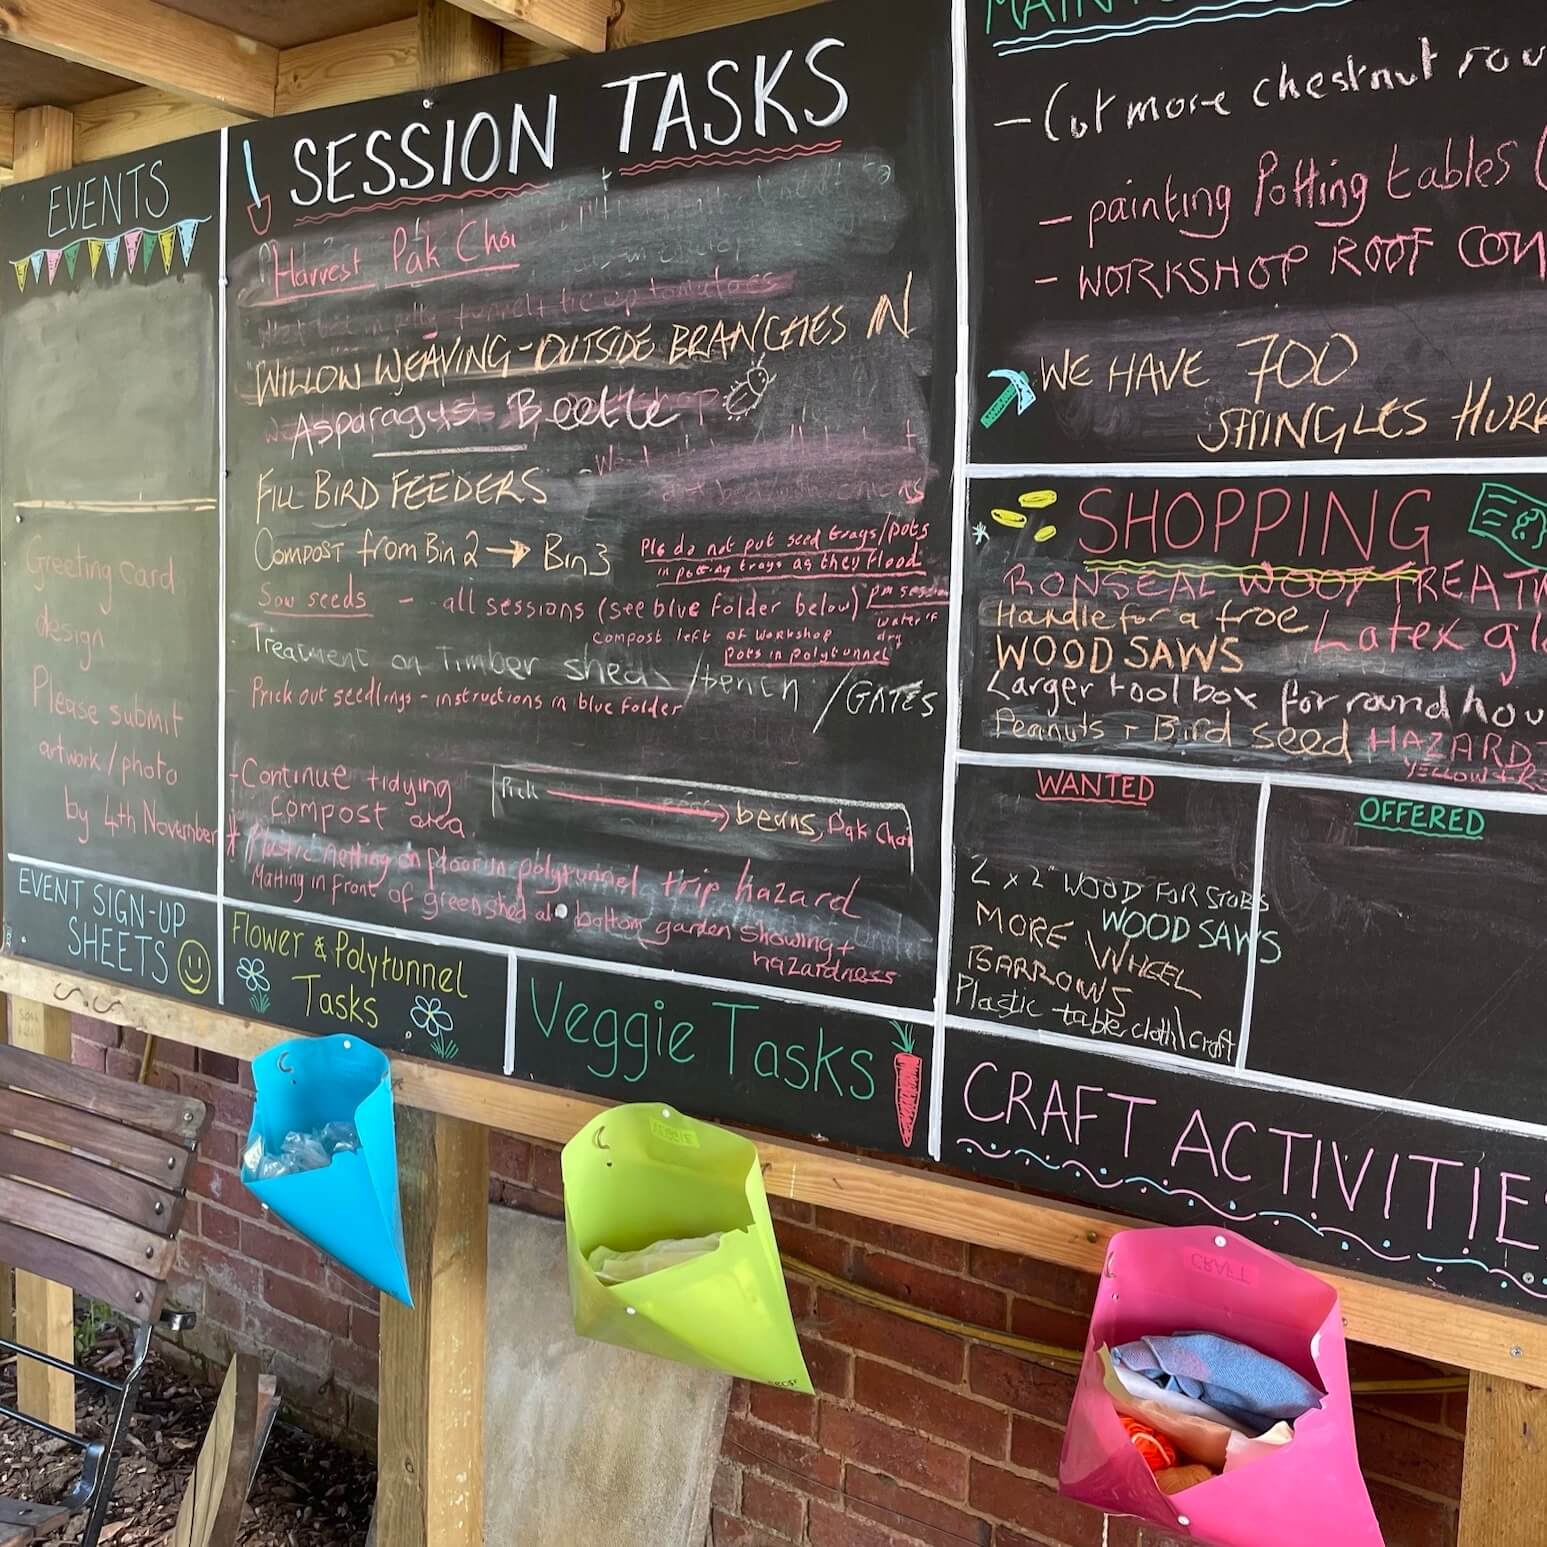 EVENTS
Greeting card
design
Please submit
artwork/photo
by 4th November
EVENT SIGN-UP
SHEETS
SESSION TASKS
Harvest Pak Choi
tie up tomatoes
WILLOW WEAVING - OUTSIDE BRANCHES IN
Asparagus Beetle
FILL BIRD FEEDERS
COMPOST from Bin 2 → Bin 3
Pls do not put seed trays/pots
in potting trays as they flood
Sow seeds - all sessions (see blue folder below) pm
water if
dry
compost left of workshop
pots in polytunnel
- Treatment on Timber sheds/bench /GATES
- Prick out seedlings - instructions in blue folder
- Continue tidying
compost area
Pick → beans, Pak Choi
* Plastic netting on floor in polytunnel trip hazard
Matting in front of green shed at bottom garden showing +
hazardness
Flower & Polytunnel
Tasks
Veggie Tasks
- Cut more chestnut
- painting Potting tables (
- WORKSHOP ROOF
WE HAVE 700
SHINGLES
SHOPPING
RONSEAL WOOD
Handle for a froe
Latex
WOOD SAWS
Larger tool box for round
Peanuts + Bird seed
HAZARD
YELLOW +
WANTED
2 x 2" WOOD FOR STOBS
WOOD SAWS
MORE WHEEL
BARROWS
Plastic table cloth\craft
OFFERED
CRAFT ACTIVITIE
VEGGIE
CRAFT